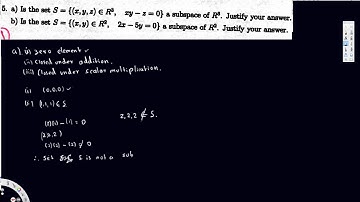 5. a) Is the set S = {(x, y, z) ∈ R³, xy − z = 0} a subspace of R³. Justify your answer.
b) Is the set S = {(x, y) ∈ R², 2x − 5y = 0} a subspace of R². Justify your answer.
a) (i) zero element ✓
(ii) closed under addition.
(iii) closed under scalar multiplication.
(i) (0,0,0) ✓
(ii) (1,1,1) ∈ S
(1)(1) − (1) = 0
2,2,2 ∉ S.
(2,2,2)
(2)(2) − (2) ≠ 0
∴ set S is not a sub